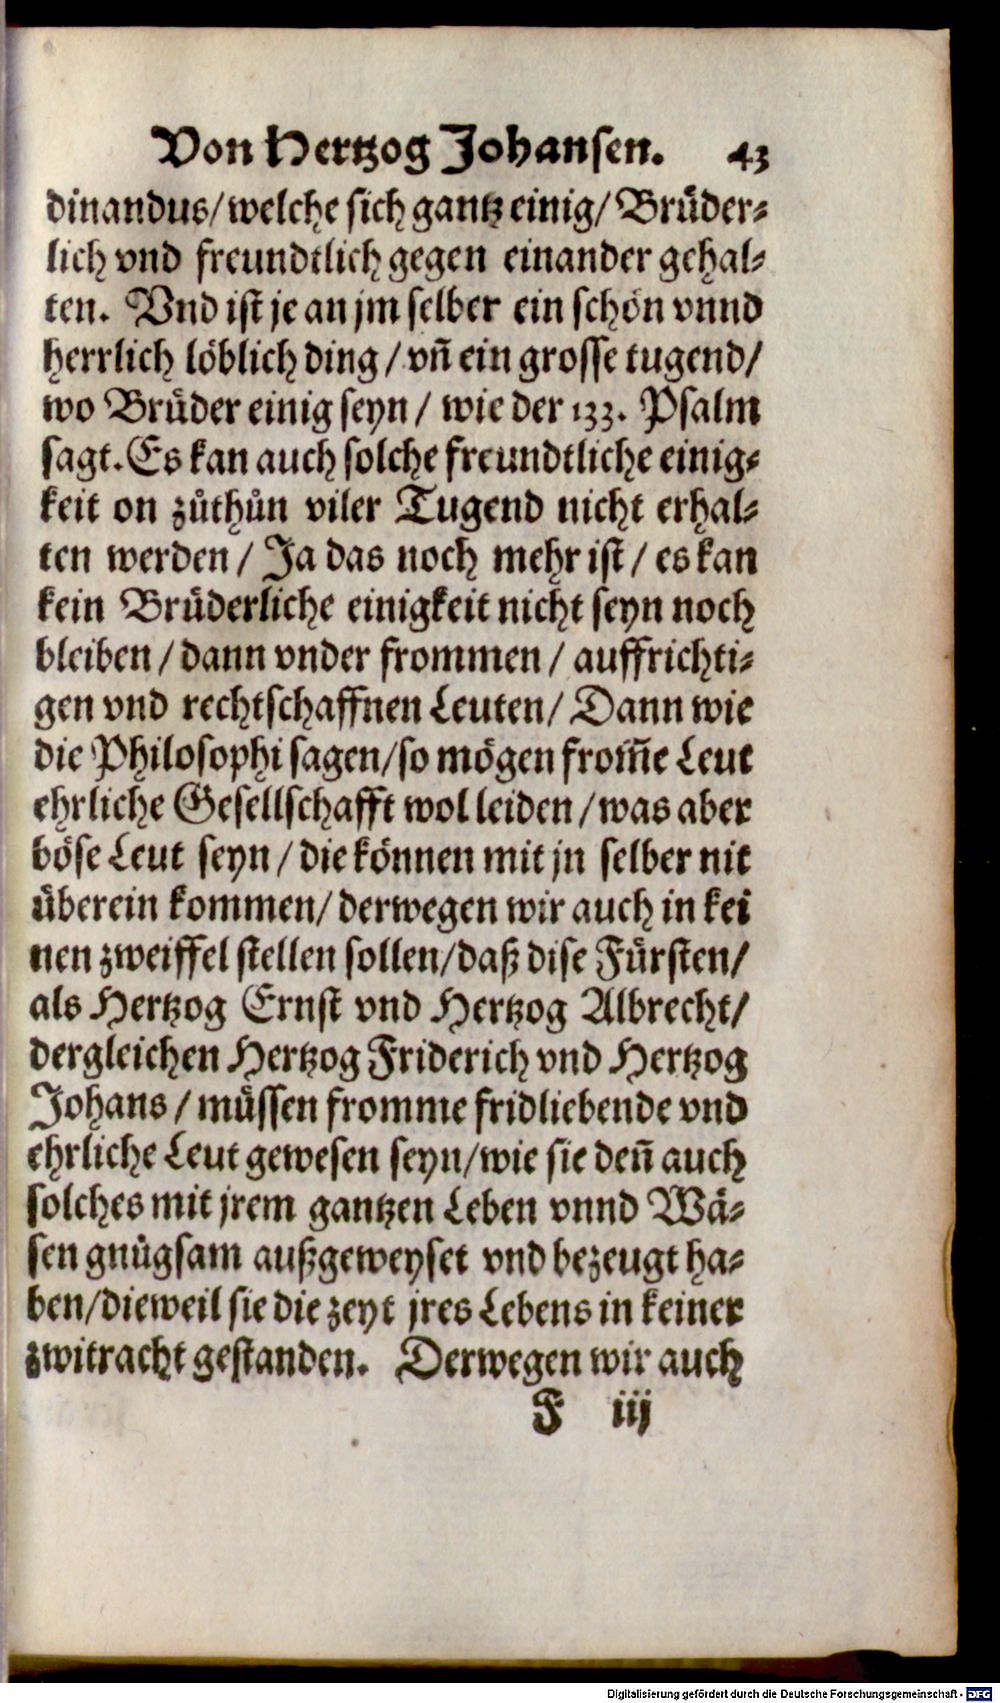 Von Hertzog Johansen. 43
dinandus/welche sich gantz einig/Bruͤder⸗
lich vnd freundtlich gegen einander gehal⸗
ten. Vnd ist je an jm selber ein schoͤn vnnd
herrlich loͤblich ding/vñ ein grosse tugend/
wo Bruͤder einig seyn/ wie der 133. Psalm
sagt. Es kan auch solche freundtliche einig⸗
keit on zuͦthuͦn viler Tugend nicht erhal⸗
ten werden/ Ja das noch mehr ist/ es kan
kein Bruͤderliche einigkeit nicht seyn noch
bleiben/dann vnder frommen/ auffrichti⸗
gen vnd rechtschaffnen Leuten/ Dann wie
die Philosophi sagen/so moͤgen from̃e Leut
ehrliche Gesellschafft wol leiden/was aber
boͤse Leut seyn/die koͤnnen mit jn selber nit
uͤberein kommen/ derwegen wir auch in kei
nen zweiffel stellen sollen/daß dise Fuͤrsten/
als Hertzog Ernst vnd Hertzog Albrecht/
dergleichen Hertzog Friderich vnd Hertzog
Johans/muͤssen fromme fridliebende vnd
ehrliche Leut gewesen seyn/wie sie deñ auch
solches mit jrem gantzen Leben vnnd Waͤ⸗
sen gnuͦgsam außgeweyset vnd bezeugt ha⸗
ben/dieweil sie die zeyt jres Lebens in keiner
zwitracht gestanden. Derwegen wir auch
F iij
Digitalisierung gefördert durch die Deutsche Forschungsgemeinschaft - DFG